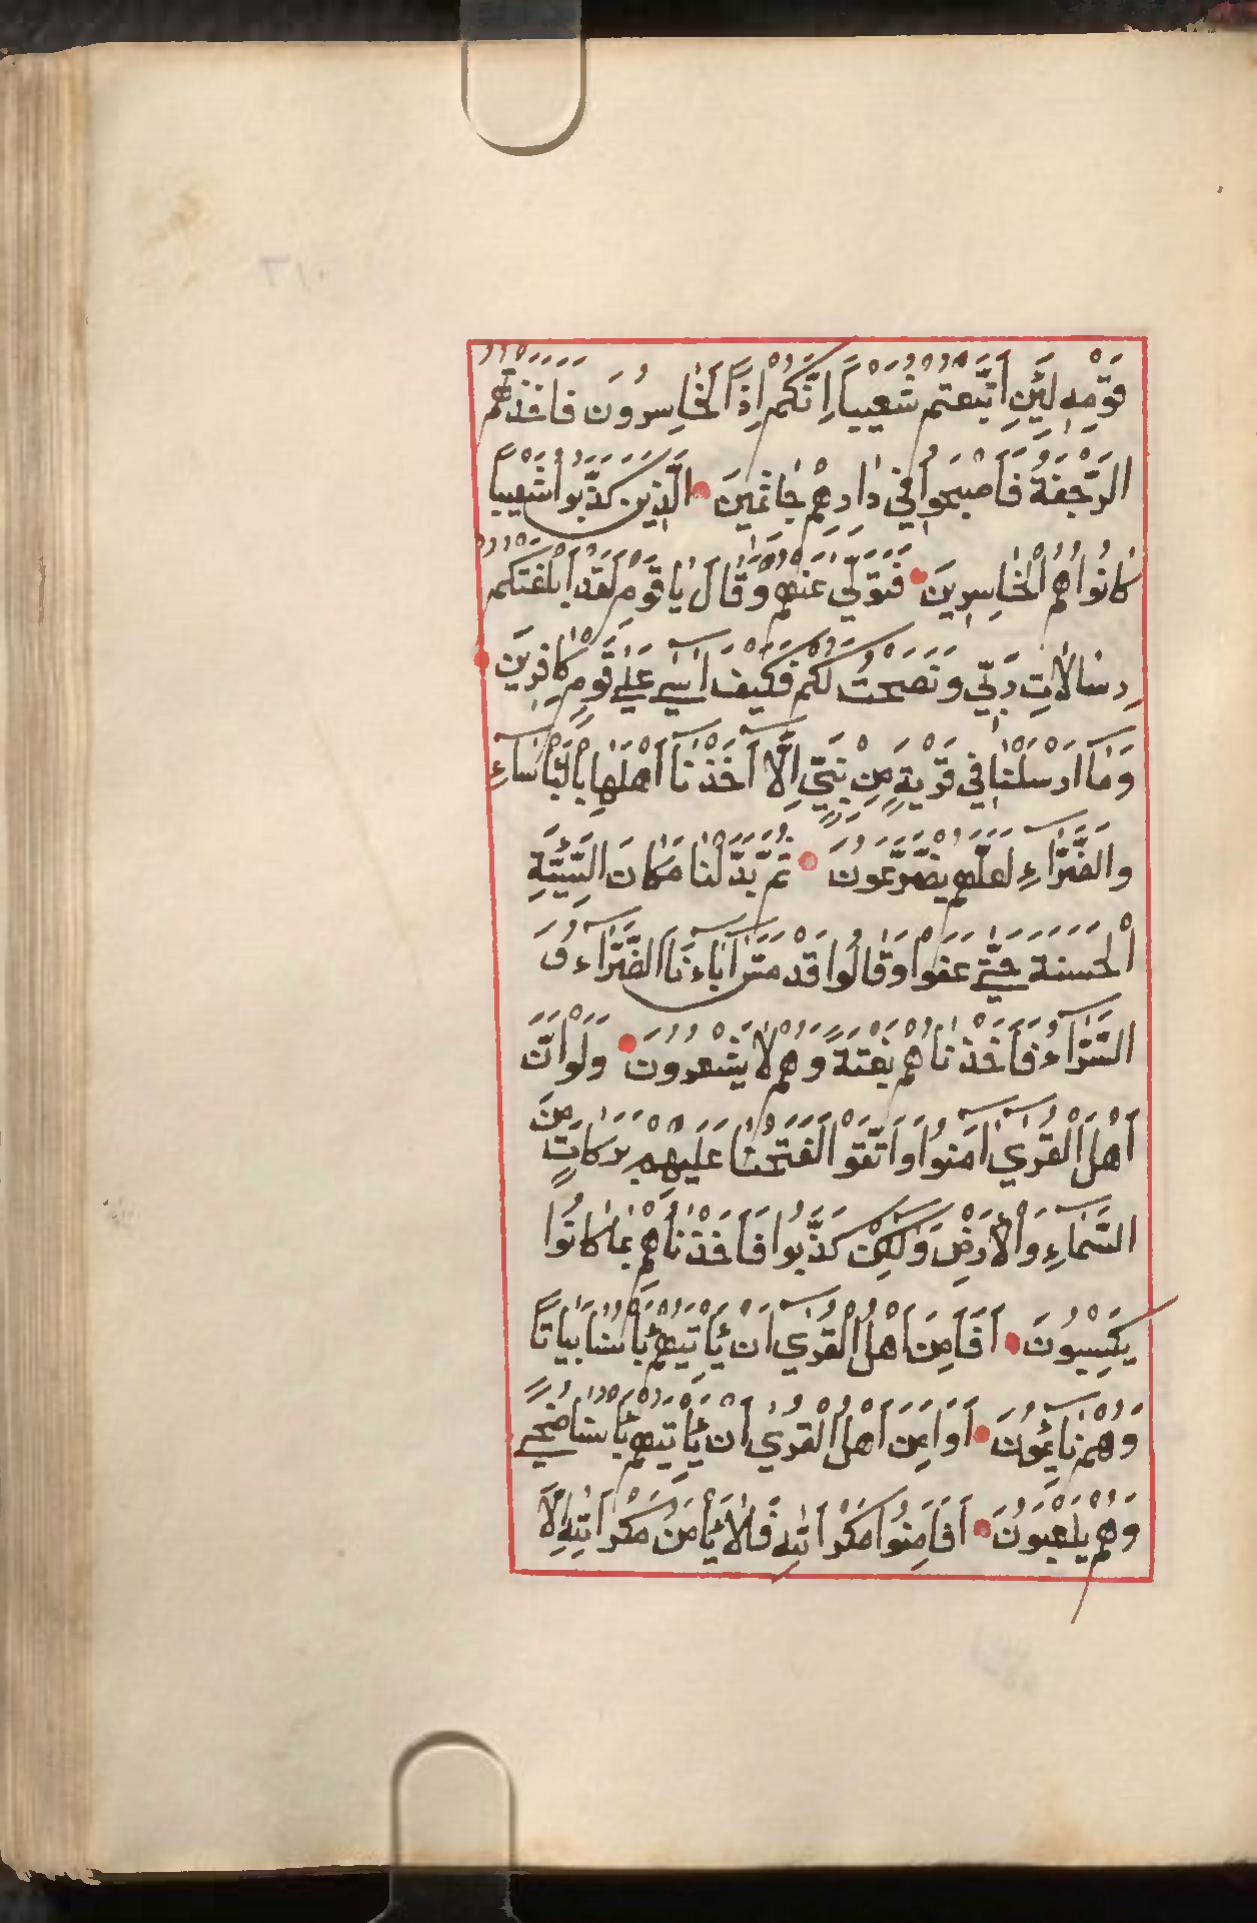 قَوْمِهِ لَئِنِ اتَّبَعْتُمْ شُعَيْباً اِنَّكُمْ اِذًا لَخَاسِرُونَ فَاَخَذَتْهُمُ
الرَّجْفَةُ فَاَصْبَحُوا فِي دَارِهِمْ جَاثِمِينَ الَّذِينَ كَذَّبُوا شُعَيْباً
كَانُوا هُمُ الْخَاسِرِينَ فَتَوَلَّى عَنْهُمْ وَقَالَ يَا قَوْمِ لَقَدْ اَبْلَغْتُكُمْ
رِسَالَاتِ رَبِّي وَنَصَحْتُ لَكُمْ فَكَيْفَ اٰسَى عَلَى قَوْمٍ كَافِرِينَ
وَمَا اَرْسَلْنَا فِي قَرْيَةٍ مِنْ نَبِيٍّ اِلَّا اَخَذْنَا اَهْلَهَا بِالْبَأْسَاءِ
وَالضَّرَّاءِ لَعَلَّهُمْ يَضَّرَّعُونَ ثُمَّ بَدَّلْنَا مَكَانَ السَّيِّئَةِ
الْحَسَنَةَ حَتَّى عَفَوْا وَقَالُوا قَدْ مَسَّ اٰبَاءَنَا الضَّرَّاءُ وَ
السَّرَّاءُ فَاَخَذْنَاهُمْ بَغْتَةً وَهُمْ لَا يَشْعُرُونَ وَلَوْ اَنَّ
اَهْلَ الْقُرَى اٰمَنُوا وَاتَّقَوْا لَفَتَحْنَا عَلَيْهِمْ بَرَكَاتٍ مِنَ
السَّمَاءِ وَالْاَرْضِ وَلٰكِنْ كَذَّبُوا فَاَخَذْنَاهُمْ بِمَا كَانُوا
يَكْسِبُونَ اَفَاَمِنَ اَهْلُ الْقُرَى اَنْ يَأْتِيَهُمْ بَأْسُنَا بَيَاتاً
وَهُمْ نَائِمُونَ اَوَاَمِنَ اَهْلُ الْقُرَى اَنْ يَأْتِيَهُمْ بَأْسُنَا ضُحًى
وَهُمْ يَلْعَبُونَ اَفَاَمِنُوا مَكْرَ اللّٰهِ فَلَا يَأْمَنُ مَكْرَ اللّٰهِ اِلَّا